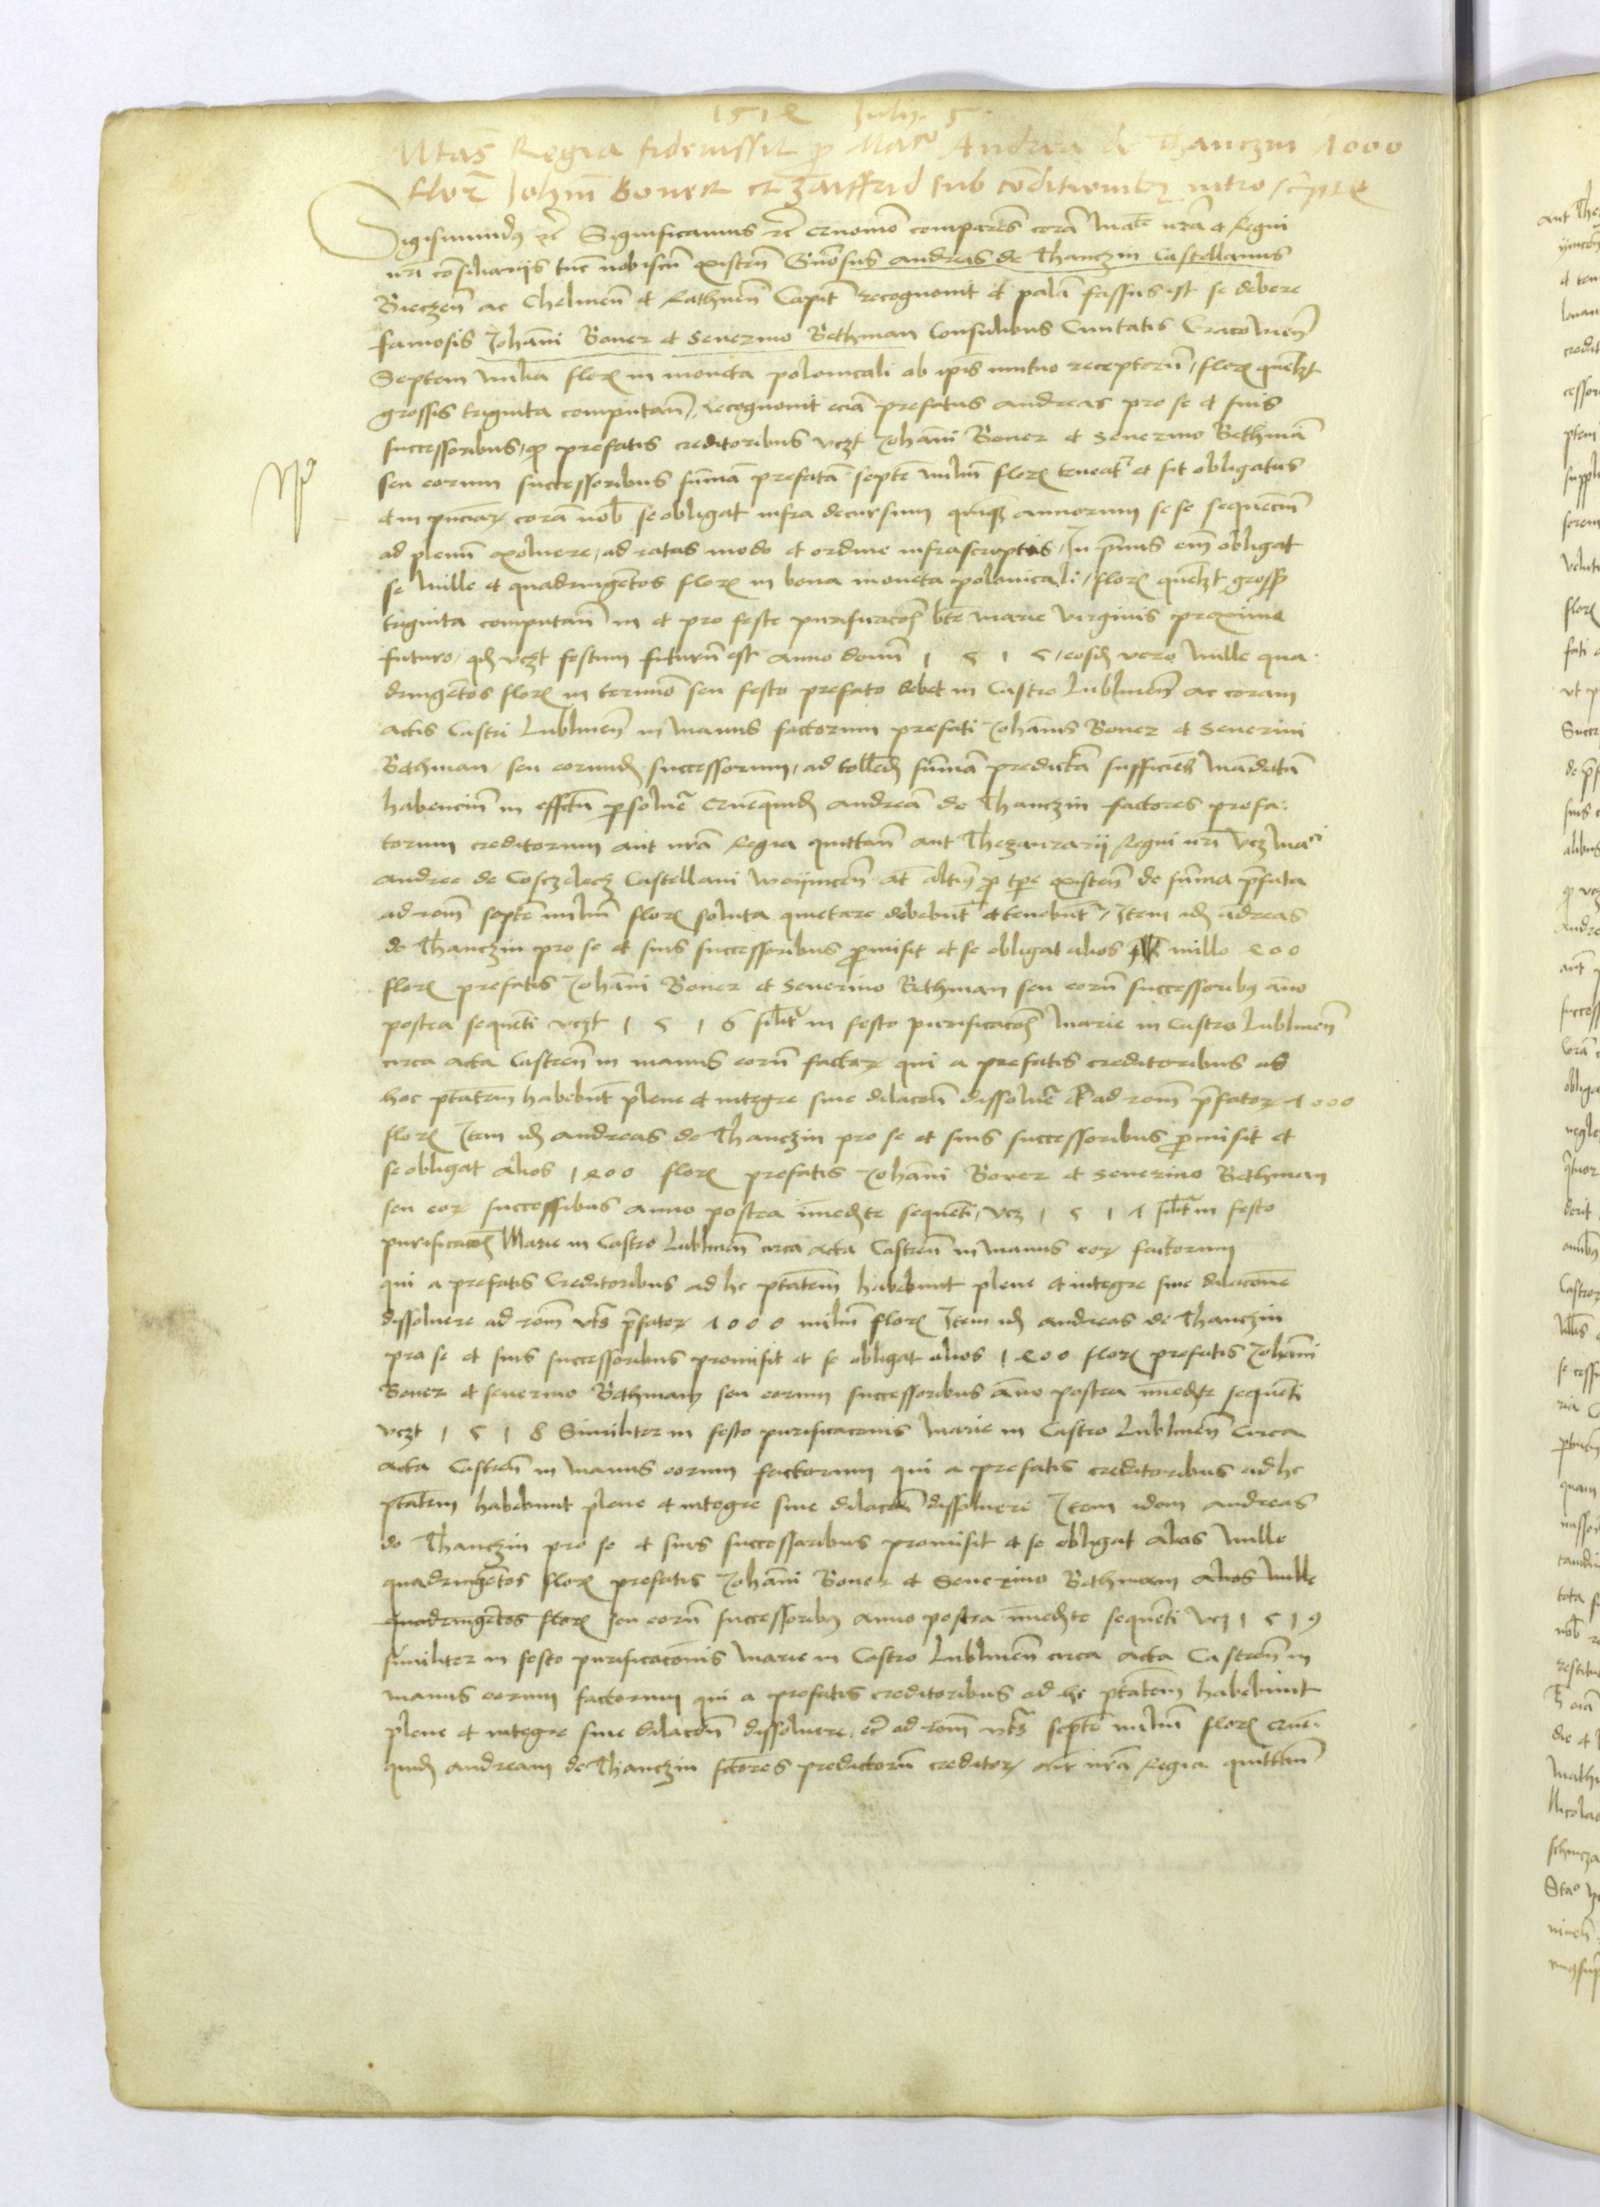 1514 Julij 5
Mtas Regia fideiussit p Matr Andrea de Thanczin 7000
flor Johani Boner et sub conditionibz intro scriptis
Sigismundus etc Significamus etc Quomo comparens cora Mate nra et Regni
nri consiliarijs tunc nobiscu existen Gnosus Andreas de Thanczin Castellanus
Bieczen ac Chelmen et Rathnen Capit recognouit et pala fassus est se debere
famosis Johani Boner et Seuerino Bethman Consulibus Ciuitatis Cracouien
Septem milia flor in moneta polonicali ab ipis mutuo receptoru, flor quelzt
grossis triginta computan, Recognouit ecia prefatus Andreas pro se et suis
successoribus, q prefatis creditoribus vczt Johani Boner et Seuerino Bethma
seu eorum successoribus suma prefata septe miliu flor teneat et sit obligatus
cora nob se obligat infra decursum quinq annorum se se sequenciu
ad plenu exoluere, ad ratas modo et ordine infrascriptis, In primis em obligat
se Mille et quadringentos flor in bona moneta polonicali, flor quelzt gross
triginta computan in et pro festo purificacois bte Marie virginis proxime
futuro, qd vczt festum futuru est Anno domi 1 5 1 5, eosd vero Mille qua-
dringentos flor in termino seu festo prefato debet in Castro Lublinen ac coram
actis Castri Lublinen in manus factorum prefati Johanis Boner et Seuerini
Bethman, seu eorund successorum, ad tollend suma predicta sufficies Mandatu
habenciu in effctu psoluer Andrea de Thanczin factores prefa-
torum creditorum aut nra Regia quittan aut Thezaurarij Regni nri vcz Mci
Andree de Coszczelecz Castellani Woynicen at altius p tpe existen de suma pfata
ad rom septe miliu flor soluta quietare debebunt et tenebunt, Item id Andreas
de Thanczin pro se et suis successoribus promisit et se obligat alios mille 400
flor prefatis Johani Boner et Seuerino Bethman seu eoru successoribus ano
postea sequenti vczt 1 5 1 6 silitr in festo purificacois Marie in Castro Lublinen
circa acta Castren in manus eoru factor qui a prefatis creditoribus ad
hoc ptatem habebunt plene et integre sine dilacon dissoluer ad rom pfator 7000
flor Item id Andreas de Thanczin pro se et suis successoribus promisit et
se obligat alios 1400 flor prefatis Johani Boner et Seuerino Bethman
seu eor successibus anno postea imedte sequenti, vcz 1 5 1 7 silitr in festo
purificacois Marie in Castro Lublinen circa acta Castren in manus eor factorum
qui a prefatis Creditoribus ad hc ptatem habebunt plene et integre sine dilacone
dissoluere ad rom vts pfator 7000 miliu flor Item id Andreas de Thanczin
pro se et suis successoribus promisit et se obligat alios 1400 flor prefatis Johani
Boner et Seuerino Bethman seu eorum successoribus ano postea imedte sequenti
vczt 1 5 1 8 Similiter in festo purificacionis Marie in Castro Lublinen Circa
acta Castren in manus eorum factorum qui a prefatis creditoribus ad hc
ptatem habebunt plene et integre sine dilacon dissoluere Item idem Andreas
de Thanczin pro se et suis successoribus promisit et se obligat alios Mille
quadringentos flor prefatis Johani Boner et Seuerino Bethmam alios Mille
quadringentos flor seu eoru successoribus anno postea imedte sequenti vcz 1 5 1 9
similiter in festo purificaconis Marie in Castro Lublinen circa acta Castren in
manus eorum factorum qui a prefatis creditoribus ad hc ptatem habebunt
plene et integre sine dilacon dissoluere, ad rom vts septe miliu flor
Andream de Thanczin fctores predictoru creditor aut nra Regia quittan